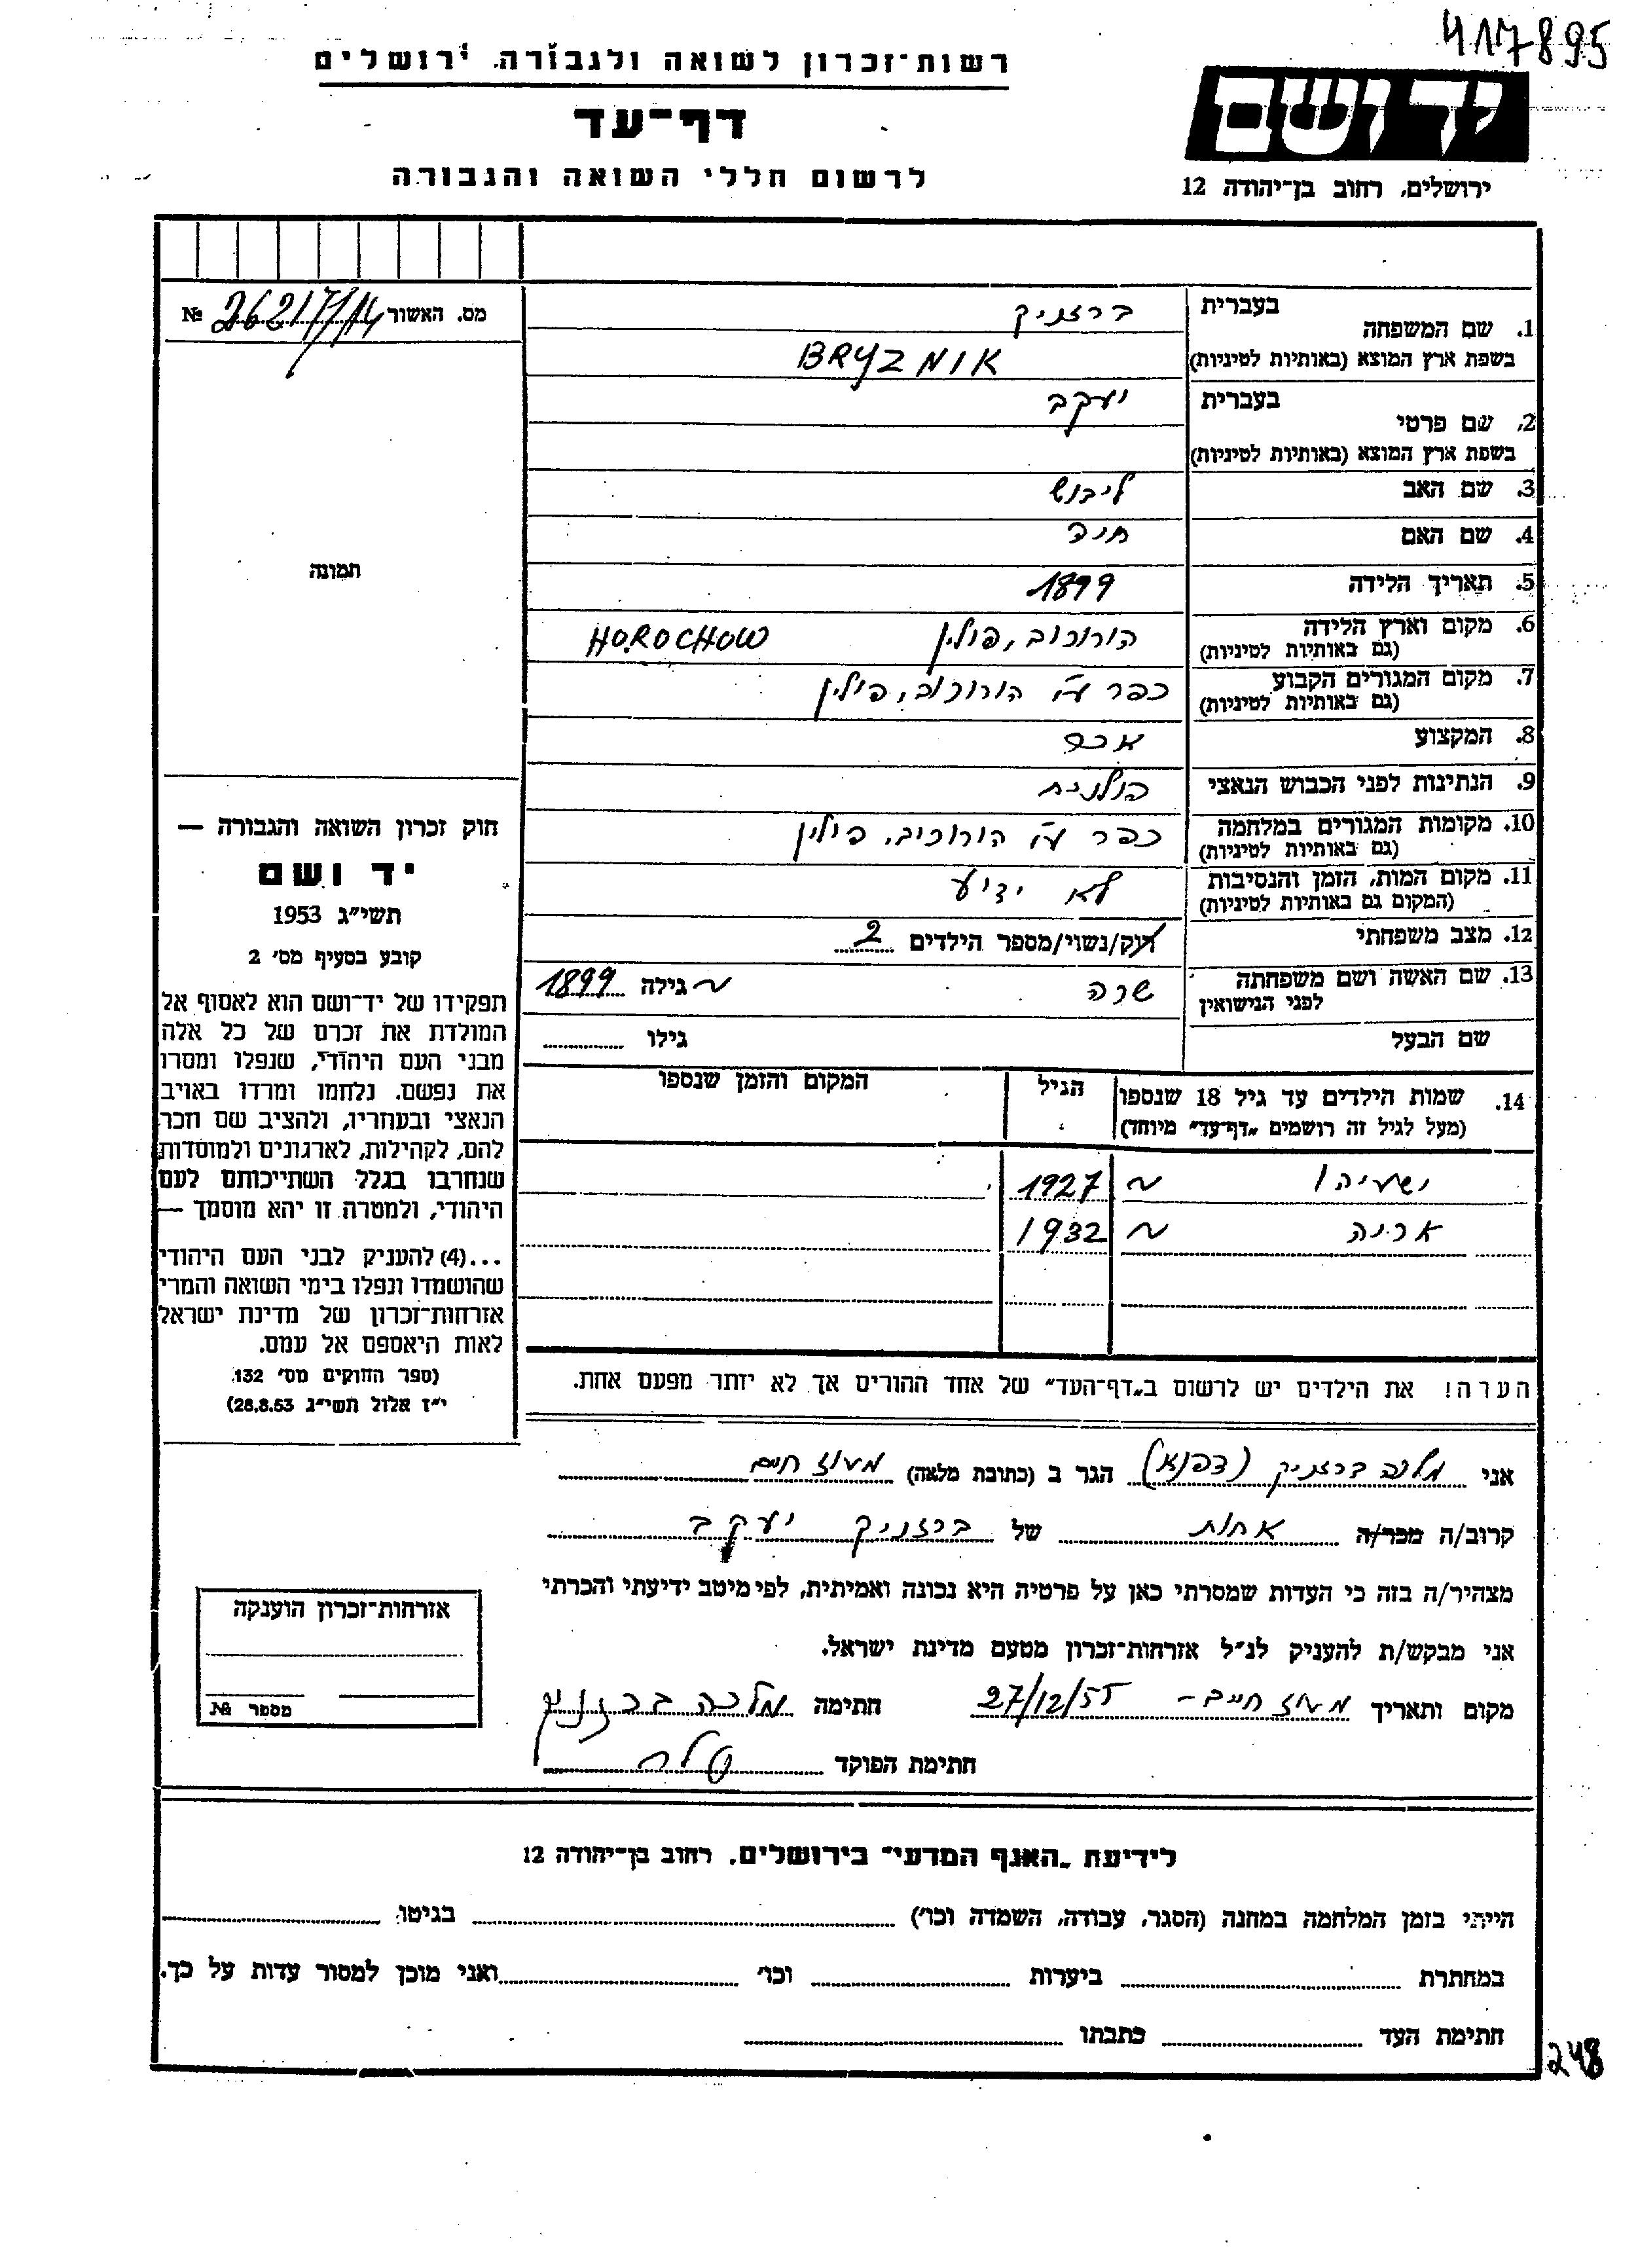 417895
רשות־זכרון לשואה ולגבורה, ירושלים
דף־עד
לרשום חללי השואה והגבורה
יד ושם
ירושלים, רחוב בן־יהודה 12
מס. האשור № 26217/14
1. שם המשפחה
בעברית ברזניק
בשפת ארץ המוצא (באותיות לטיניות)
2. שם פרטי
בעברית יעקב
בשפת ארץ המוצא (באותיות לטיניות)
3. שם האב ליבוש
4. שם האם חיה
5. תאריך הלידה 1899
6. מקום וארץ הלידה הורוכוב, פולין HOROCHOW
(גם באותיות לטיניות)
7. מקום המגורים הקבוע כפר ע״י הורוכוב, פולין
(גם באותיות לטיניות)
8. המקצוע אכר
9. הנתינות לפני הכבוש הנאצי פולנית
10. מקומות המגורים במלחמה כפר ע״י הורוכוב, פולין
(גם באותיות לטיניות)
11. מקום המות, הזמן והנסיבות לא ידוע
(המקום גם באותיות לטיניות)
12. מצב משפחתי רוק/נשוי/מספר הילדים 2
13. שם האשה ושם משפחתה שרה גילה ~ 1899
לפני הנישואין
שם הבעל גילו
14. שמות הילדים עד גיל 18 שנספו הגיל המקום והזמן שנספו
(מעל לגיל זה רושמים „דף־עד״ מיוחד)
ישעיהו ~ 1927
אריה ~ 1932
הערה! את הילדים יש לרשום ב„דף־העד״ של אחד ההורים אך לא יותר מפעם אחת.
תמונה
חוק זכרון השואה והגבורה —
יד ושם
תשי״ג 1953
קובע בסעיף מס׳ 2
תפקידו של יד־ושם הוא לאסוף אל
המולדת את זכרם של כל אלה
מבני העם היהודי, שנפלו ומסרו
את נפשם. נלחמו ומרדו באויב
הנאצי ובעוזריו, ולהציב שם וזכר
להם, לקהילות, לארגונים ולמוסדות
שנחרבו בגלל השתייכותם לעם
היהודי, ולמטרה זו יהא מוסמך —
...(4) להעניק לבני העם היהודי
שהושמדו ונפלו בימי השואה והמרי
אזרחות־זכרון של מדינת ישראל
לאות היאספם אל עמם.
(ספר החוקים מס׳ 132
י״ז אלול תשי״ג 28.8.53)
אני מלכה ברזניק (דפנא) הגר ב (כתובת מלאה) מעוז חיים
קרוב/ה מכר/ה אחות של ברזניק יעקב
מצהיר/ה בזה כי העדות שמסרתי כאן על פרטיה היא נכונה ואמיתית, לפי מיטב ידיעתי והכרתי
אני מבקש/ת להעניק לנ״ל אזרחות־זכרון מטעם מדינת ישראל.
מקום ותאריך מעוז חיים – 27/12/55 חתימה מלכה ברזניק
חתימת הפוקד
אזרחות־זכרון הוענקה
מספר №
לידיעת „האגף המדעי״ בירושלים, רחוב בן־יהודה 12
הייתי בזמן המלחמה במחנה (הסגר, עבודה, השמדה וכו׳) בגיטו
במחתרת ביערות וכו׳ ואני מוכן למסור עדות על כך.
חתימת העד כתבתו
248